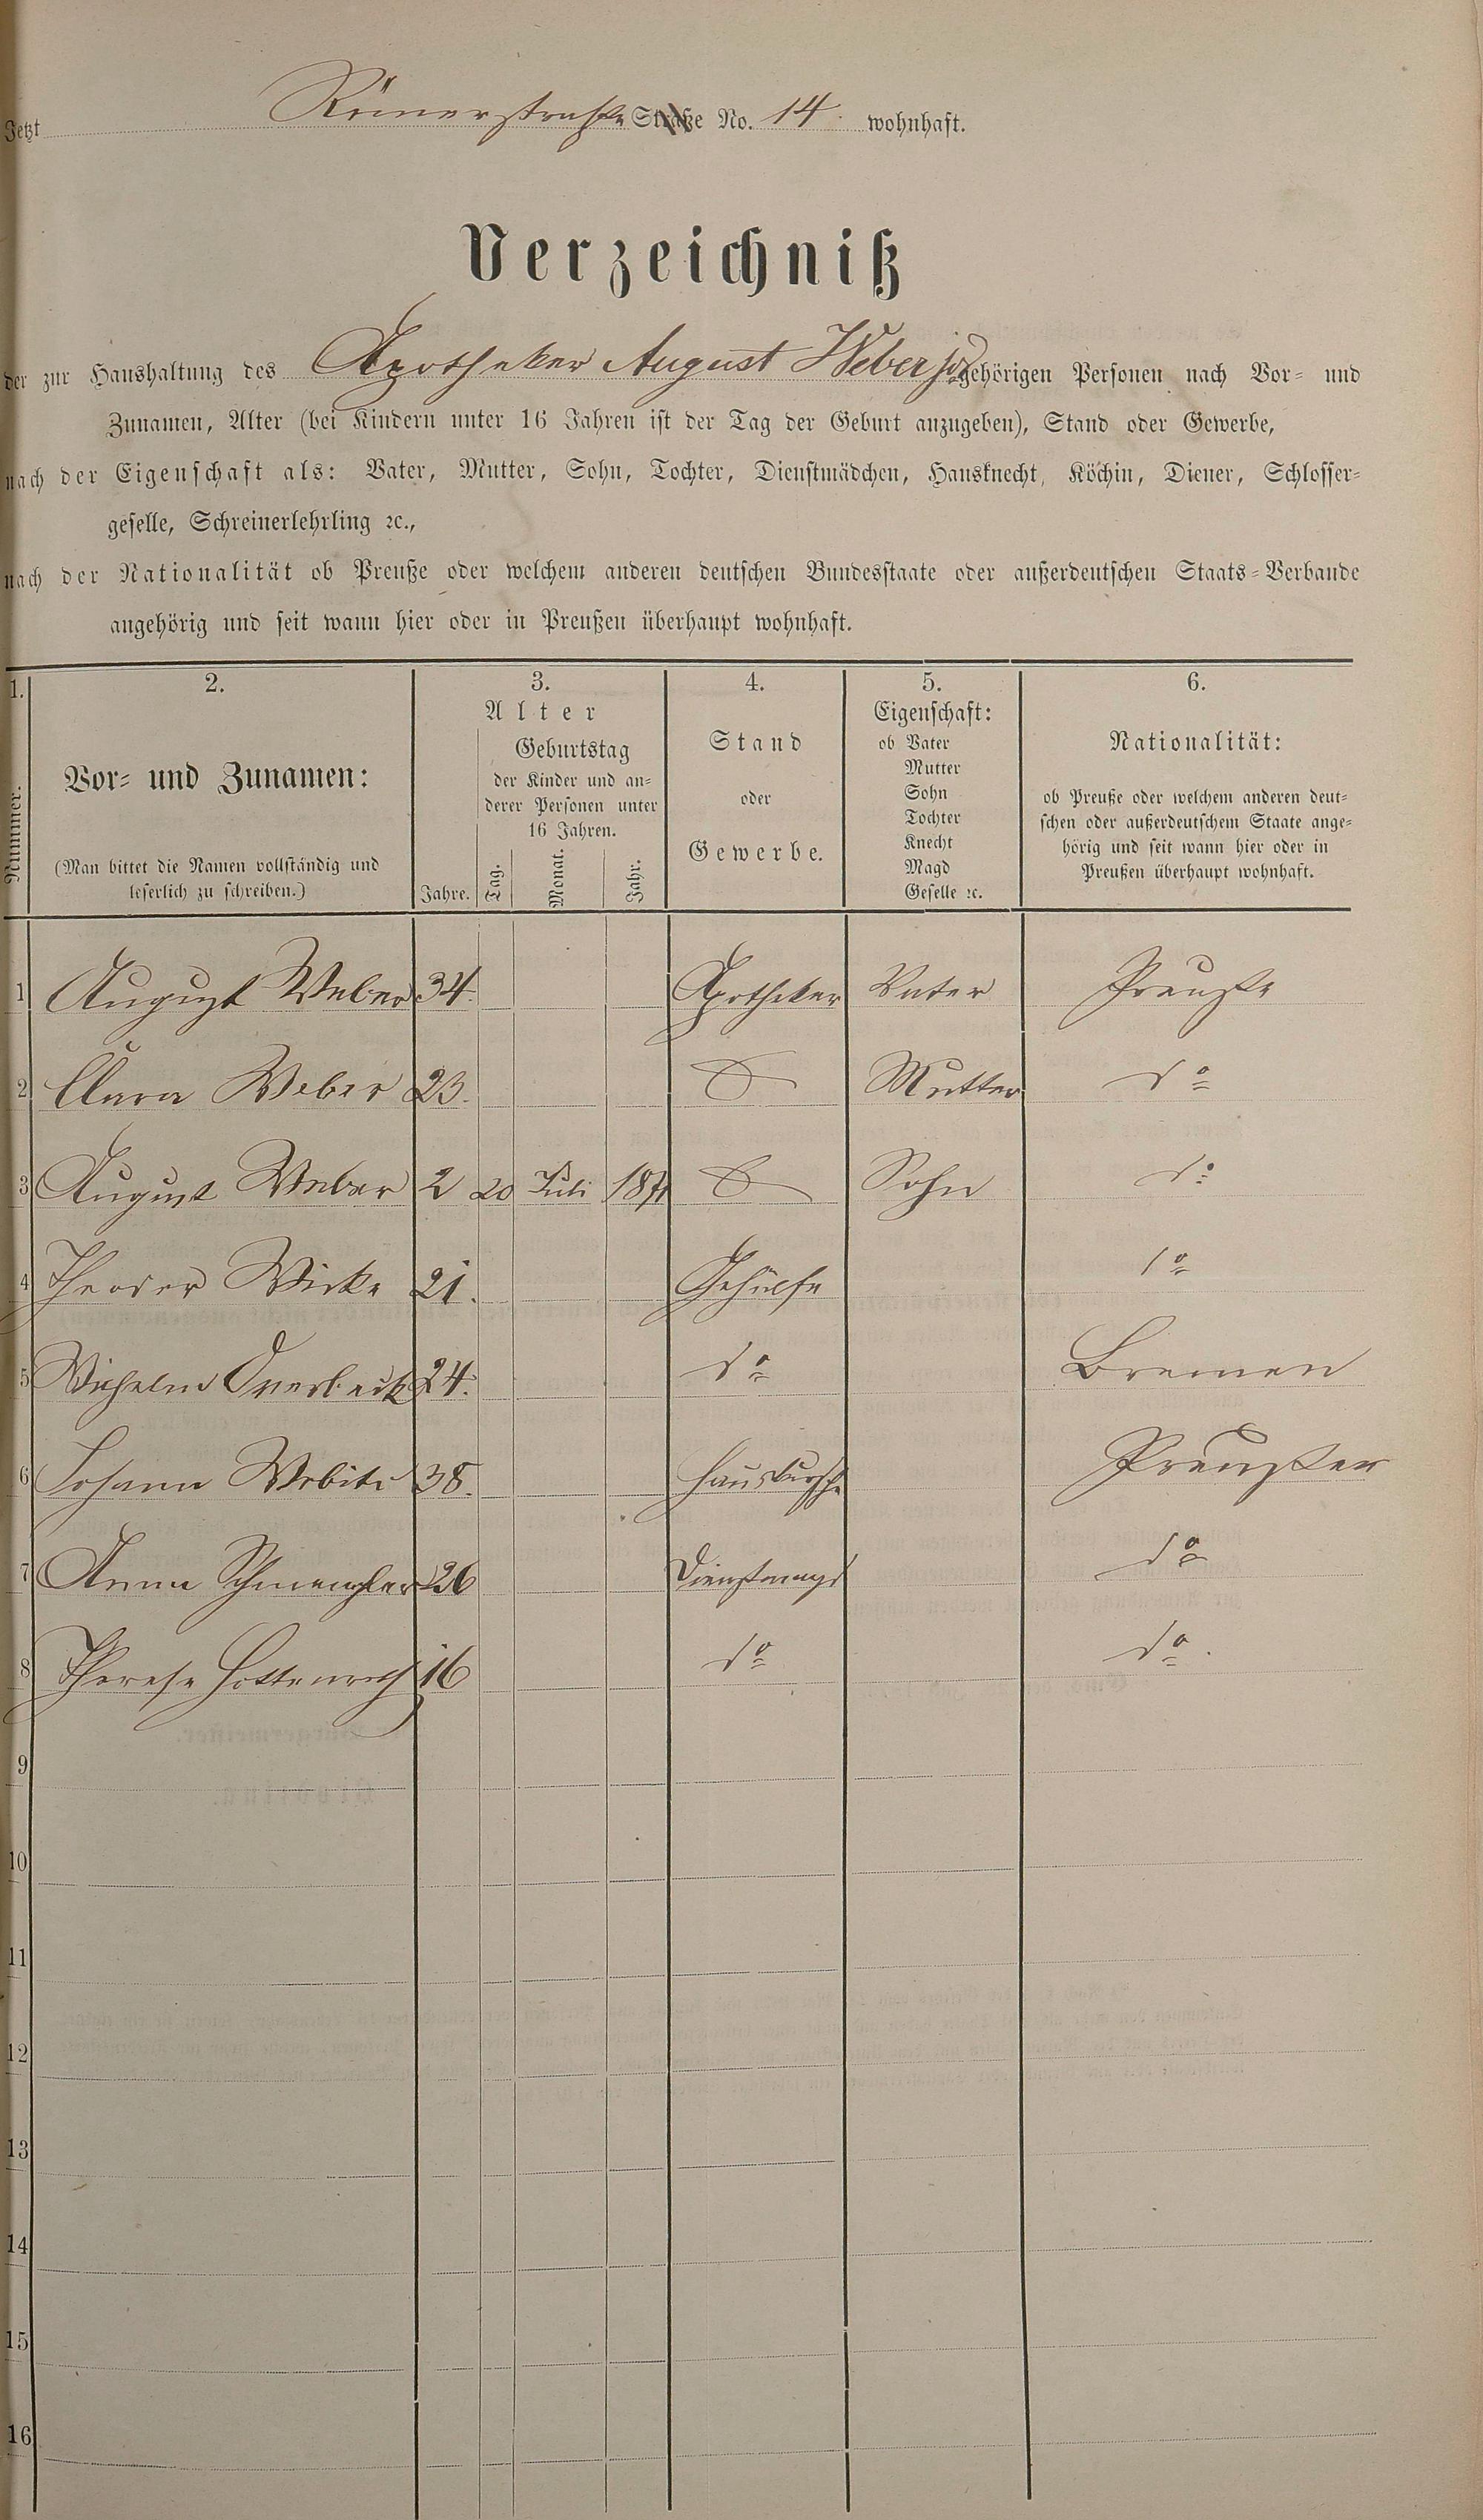 Jetzt Römerstraße Straße No. 14. wohnhaft.
Verzeichniß
der zur Haushaltung des Apotheker August Weber jr. gehörigen Personen nach Vor- und
Zunamen, Alter (bei Kindern unter 16 Jahren ist der Tag der Geburt anzugeben), Stand oder Gewerbe,
nach der Eigenschaft als: Vater, Mutter, Sohn, Tochter, Dienstmädchen, Hausknecht, Köchin, Diener, Schlosser-
geselle, Schreinerlehrling ꝛc.,
nach der Nationalität ob Preuße oder welchem anderen deutschen Bundesstaate oder außerdeutschen Staats-Verbande
angehörig und seit wann hier oder in Preußen überhaupt wohnhaft.
1.
Nummer.
2.
Vor- und Zunamen:
(Man bittet die Namen vollständig und
leserlich zu schreiben.)
3.
Alter
Jahre.
Geburtstag
der Kinder und an-
derer Personen unter
16 Jahren.
Tag. Monat. Jahr.
4.
Stand
oder
Gewerbe.
5.
Eigenschaft:
ob Vater
Mutter
Sohn
Tochter
Knecht
Magd
Geselle ꝛc.
6.
Nationalität:
ob Preuße oder welchem anderen deut-
schen oder außerdeutschem Staate ange-
hörig und seit wann hier oder in
Preußen überhaupt wohnhaft.
1 August Weber 34. Apotheker Vater Preuße
2 Clara Weber 23. Mutter do
3 August Weber 2 20 Juli 1871 Sohn do
4 Theodor Wirke 21. Gehülfe do
5 Wilhelm Overbeck 24. do Bremen
6 Johann 38. Hausbursche Preußen
7 Anna 26 Dienstmagd do
8 Therese Hottenroth 16 do do.
9
10
11
12
13
14
15
16